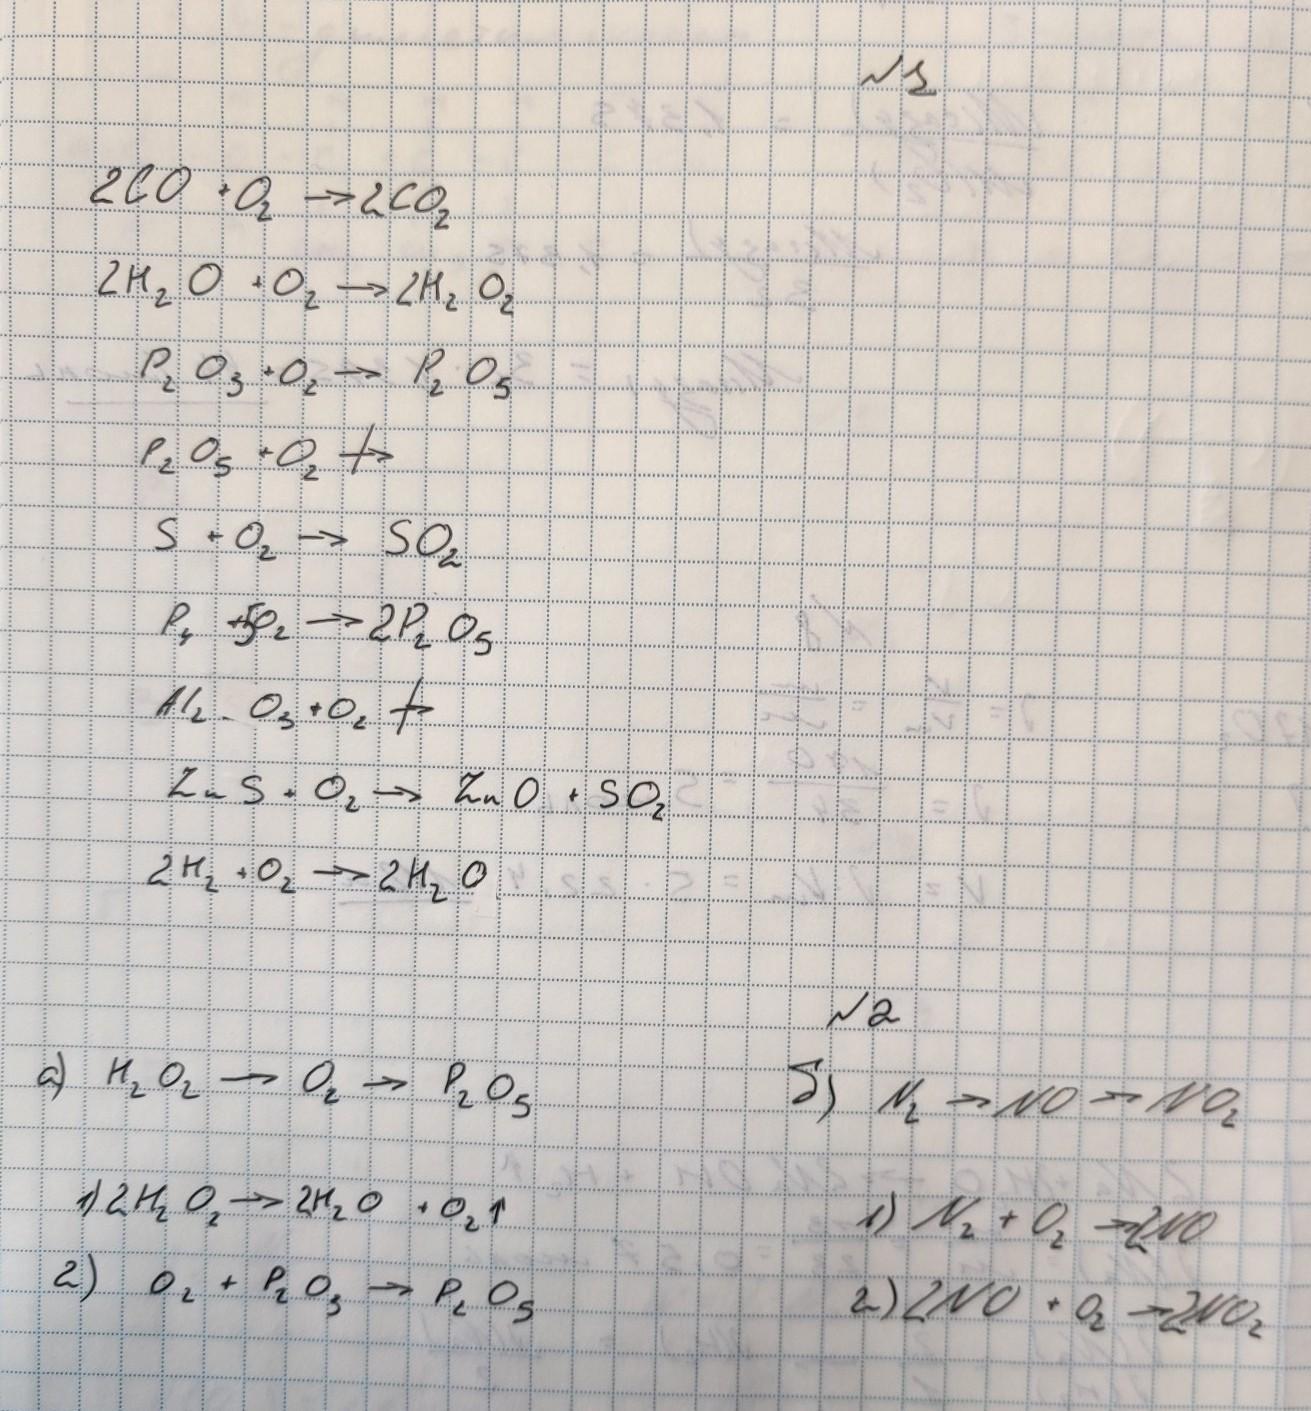 №1
2CO + O₂ → 2CO₂
2H₂O + O₂ → 2H₂O₂
P₂O₃ + O₂ → P₂O₅
P₂O₅ + O₂ ↛
S + O₂ → SO₂
P₄ + 5O₂ → 2P₂O₅
Al₂O₃ + O₂ ↛
ZnS + O₂ → ZnO + SO₂
2H₂ + O₂ → 2H₂O
№2
а) H₂O₂ → O₂ → P₂O₅
1) 2H₂O₂ → 2H₂O + O₂↑
2) O₂ + P₂O₃ → P₂O₅
б) N₂ → NO → NO₂
1) N₂ + O₂ → 2NO
2) 2NO + O₂ → 2NO₂